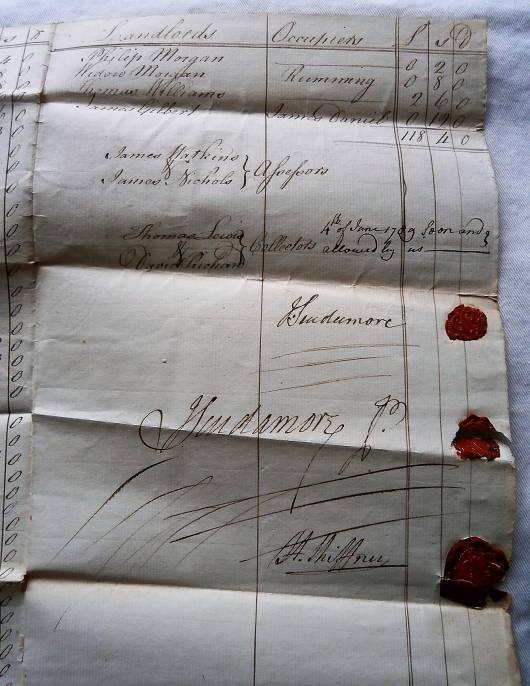 Landlords Occupiers £ s D
Philip Morgan 0 2 0
Widow Morgan Rumming 0 8 0
Thomas Williams 2 6 0
James Gilbert James Daniel 0 12 0
118 4 0
James Watkins
&
James Nichols } Assessors
Thomas Lewis
&
David Prichard } Collectors
4th of June 1789 Seen and
allowed by us
Scudamore
Scudamore
H. Shiffner